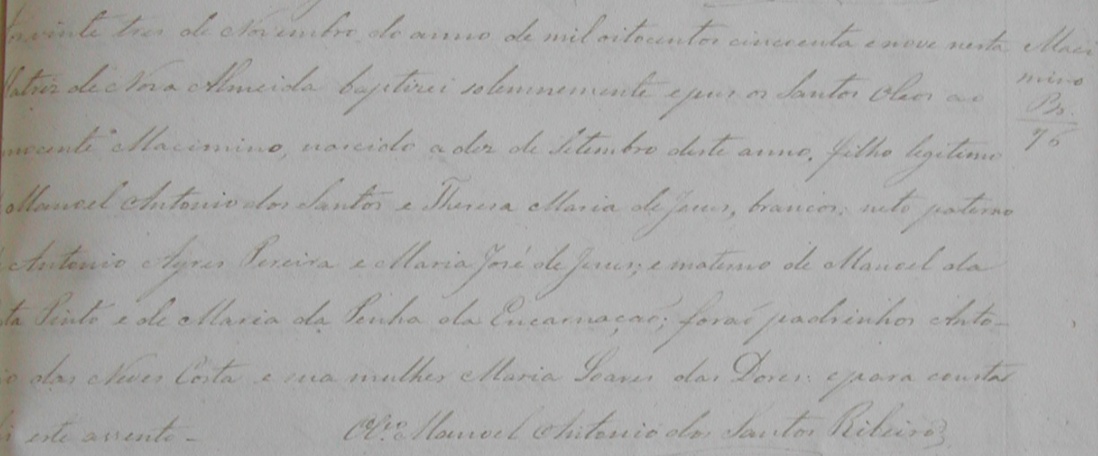 vinte tres de Novembro do anno de mil oitocentos cincoenta e nove nesta
Matriz de Nova Almeida baptizei solemnemente e puz os Santos Oleos ao
nnocente Macimino, nascido a dez de Setembro deste anno, filho legitimo
Manoel Antonio dos Santos e Theresa Maria de Jesus, brancos; neto paterno
Antonio Ayres Pereira e Maria José de Jesus; e materno de Manoel da
ta Pinto e de Maria da Penha da Encarnação; foraõ padrinhos Anto-
io das Neves Costa e sua mulher Maria Soares das Dores: e para constar
i este assento -
O Vigrº Manoel Antonio dos Santos Ribeiro
Maci
mino
Br.
76